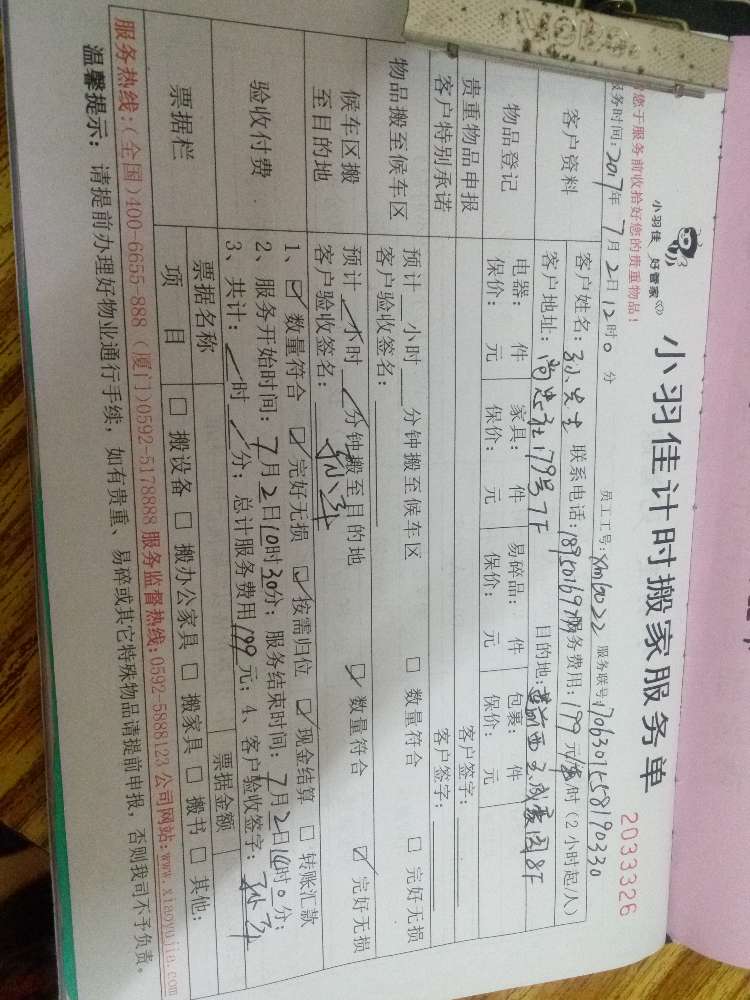 小羽佳 好管家
小羽佳计时搬家服务单
2033326
您于服务前收拾好您的贵重物品！
服务时间：2017年7月2日12时0分
员工工号：xm6022 服务联号：
客户资料
客户姓名：孙先生 联系电话： 服务费用：199元 时（2小时起/人）
客户地址： 179号7F 目的地： 8F
物品登记
电器： 件 家具： 件 易碎品： 件 包裹： 件
保价： 元 保价： 元 保价： 元 保价： 元
贵重物品申报 客户签字：
客户特别承诺 客户签字：
物品搬至候车区
预计 小时 分钟搬至候车区 □ 数量符合 □ 完好无损
客户验收签名：
候车区搬至目的地
预计 小时 分钟搬至目的地 ☑ 数量符合 ☑ 完好无损
客户验收签名：
验收付费
1、☑ 数量符合 ☑ 完好无损 ☑ 按需归位 ☑ 现金结算 □ 转账汇款
2、服务开始时间：7月2日10时30分；服务结束时间：7月2日 时0分；
3、共计： 时 分；总计服务费用199元；4、客户验收签字：
票据栏
票据名称 票据金额
项 目 □ 搬设备 □ 搬办公家具 □ 搬家具 □ 搬书 □ 其他：
服务热线：(全国)400-6655-888 (厦门)0592-5178888 服务监督热线：0592-5888123 公司网站：www.xiaoyujia.com
温馨提示：请提前办理好物业通行手续，如有贵重、易碎或其它特殊物品请提前申报，否则我司不予负责。